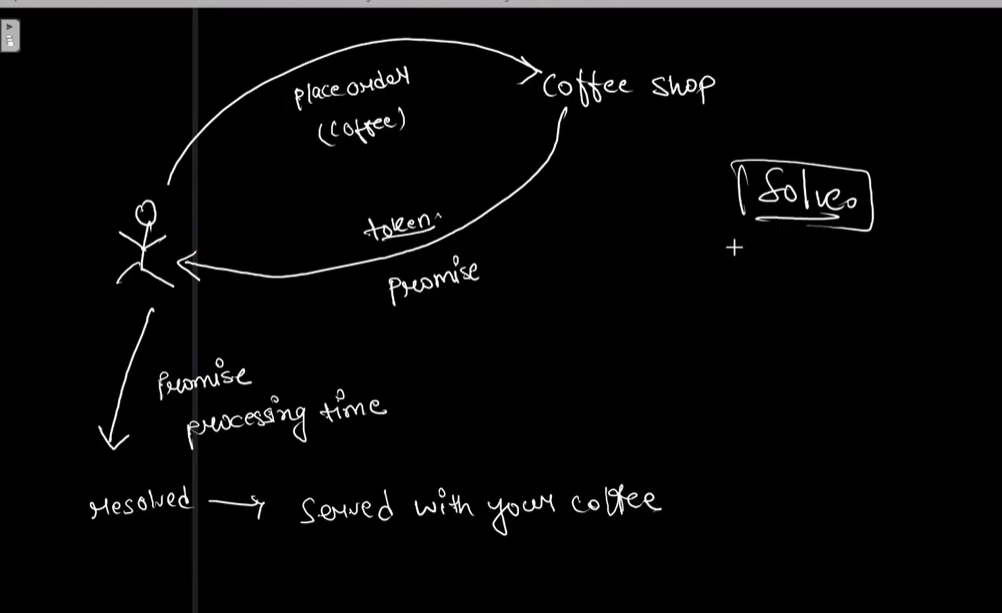 place order
(coffee)
coffee shop
Solve.
token.
Promise
Promise
processing time
resolved → served with your coffee